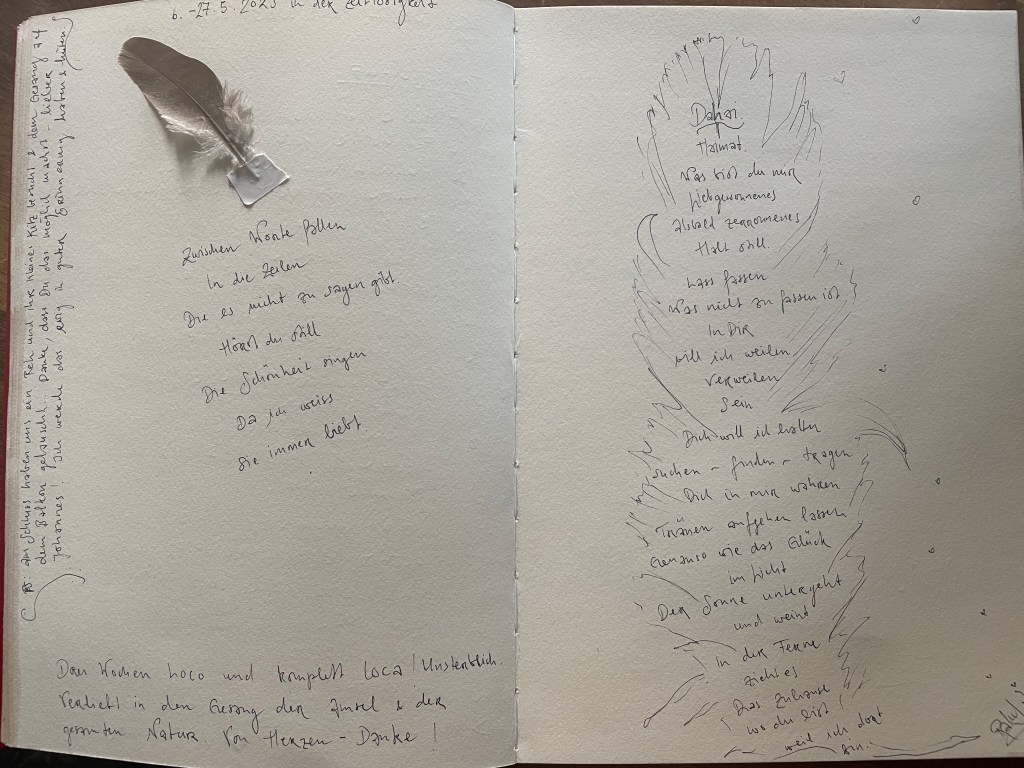 6. - 27.5.2023 in der Zeitlosigkeit
Zwischen Worte fallen
In die Zeilen
Die es nicht zu sagen gibt
Hörst du still
Die Schönheit singen
Da ich weiss
Sie immer liebt
Drei Wochen Loco und komplett Loca! Unsterblich
verliebt in den Gesang der Amsel & der
gesamten Natur. Von Herzen - Danke!
PS: Am Schluss haben uns ein Reh und ihr kleines Kitz besucht & dem Gesang auf
dem Balkon gelauscht. Danke, dass Du das möglich machst - lieber
Johannes! Ich werde das ewig in guter Erinnerung haben & hüten.
Daheim
Heimat
Was bist du mir
Liebgewonnenes
alsbald zerronnenes
Halt still
Lass fassen
Was nicht zu fassen ist
In Dir
will ich weilen
Verweilen
Sein
Dich will ich halten
suchen - finden - tragen
Dich in mir wahren
Tränen aufgehen lassen
Genauso wie das Glück
im Licht
Der Sonne untergeht
und weint
In der Ferne
zieht es
Das Zuhause
wo du bist!
weil ich dort
bin.